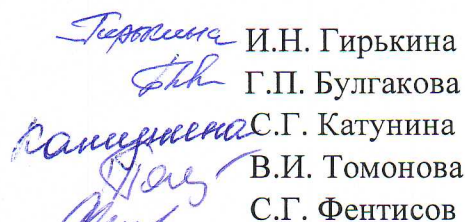 Гирькина И.Н. Гирькина
Г.П. Булгакова
Катунина С.Г. Катунина
В.И. Томонова
С.Г. Фентисов